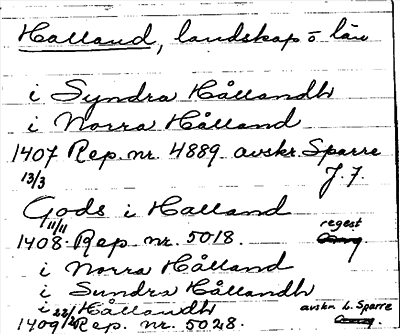 Halland, landskap o län
i Syndra Hållandh
i Norra Hålland
1407 Rep. nr. 4889 avskr. Sparre
13/3 J. 7.
Gods i Halland
11/11 regest
1408. Rep. nr. 5018.
i Norra Hålland
i Sundra Hållandh
i Hållandh avskr. b. Sparre
1409 Rep. nr. 5028.